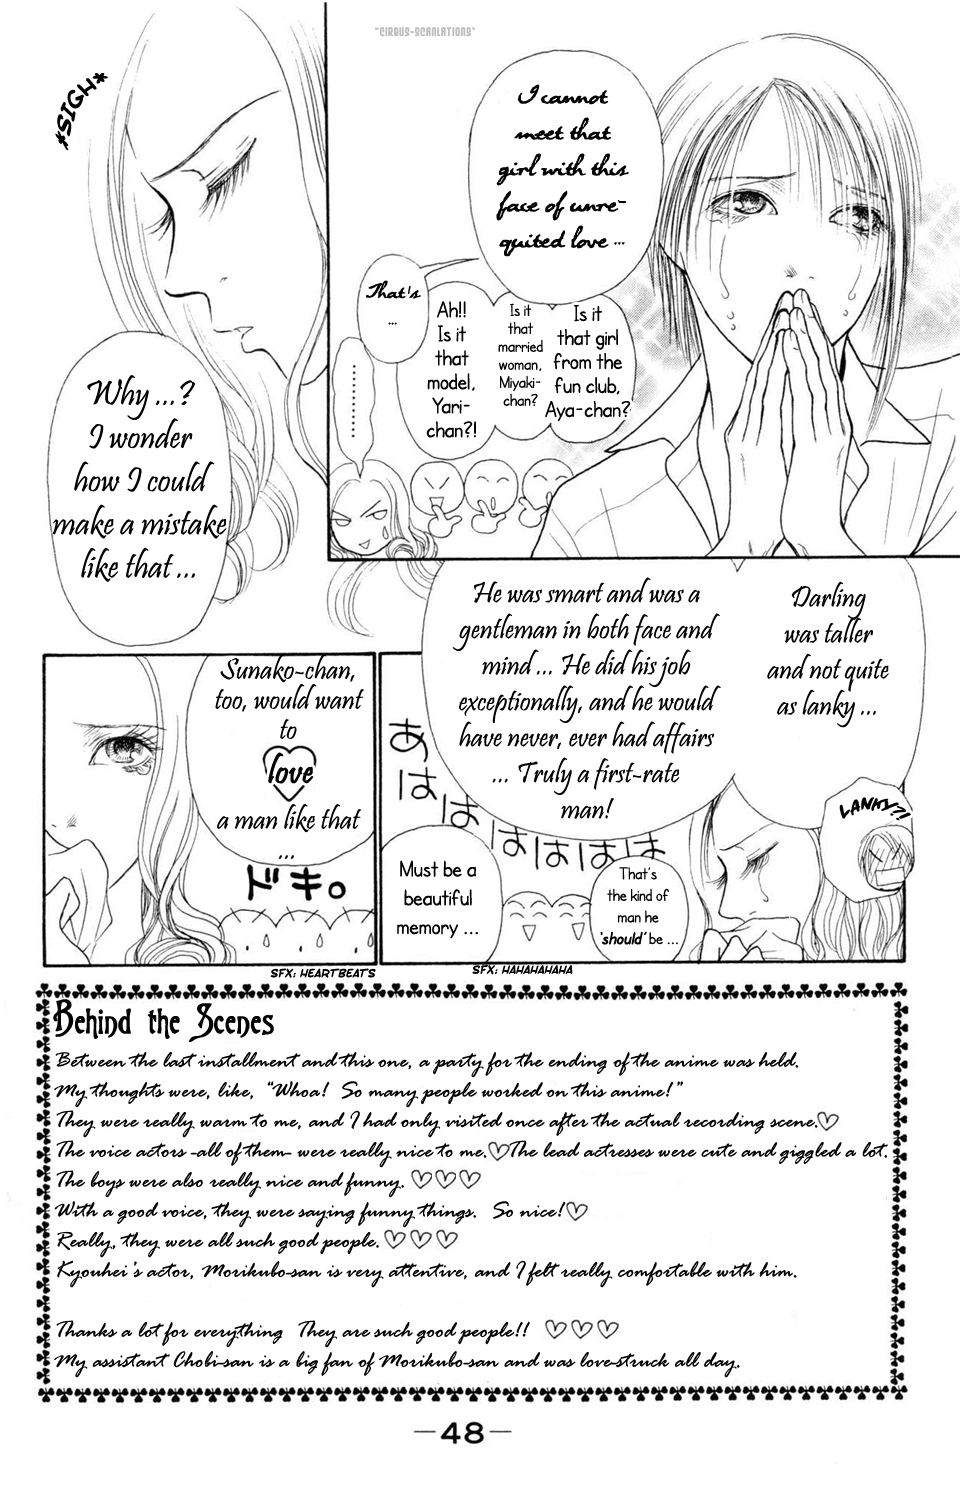 "CIRCUS-SCANLATIONS"
I cannot
meet that
girl with this
face of unre-
quited love ...
Is it
that girl
from the
fun club,
Aya-chan?
Is it
that
married
woman,
Miyaki-
chan?
Ah!!
Is it
that
model,
Yari-
chan?!
That's
...
..........
*SIGH*
Why ...?
I wonder
how I could
make a mistake
like that ...
Darling
was taller
and not quite
as lanky ...
He was smart and was a
gentleman in both face and
mind ... He did his job
exceptionally, and he would
have never, ever had affairs
... Truly a first-rate
man!
LANKY?!
That's
the kind of
man he
'should' be ...
Must be a
beautiful
memory ...
あははははははは
SFX: HAHAHAHAHA
Sunako-chan,
too, would want
to
love
a man like that
...
ドキ。
SFX: HEARTBEATS
Behind the Scenes
Between the last installment and this one, a party for the ending of the anime was held.
My thoughts were, like, "Whoa! So many people worked on this anime!"
They were really warm to me, and I had only visited once after the actual recording scene.♡
The voice actors -all of them- were really nice to me.♡The lead actresses were cute and giggled a lot.
The boys were also really nice and funny. ♡♡♡
With a good voice, they were saying funny things. So nice!♡
Really, they were all such good people.♡♡♡
Kyouhei's actor, Morikubo-san is very attentive, and I felt really comfortable with him.
Thanks a lot for everything They are such good people!! ♡♡♡
My assistant Chobi-san is a big fan of Morikubo-san and was love-struck all day.
-48-